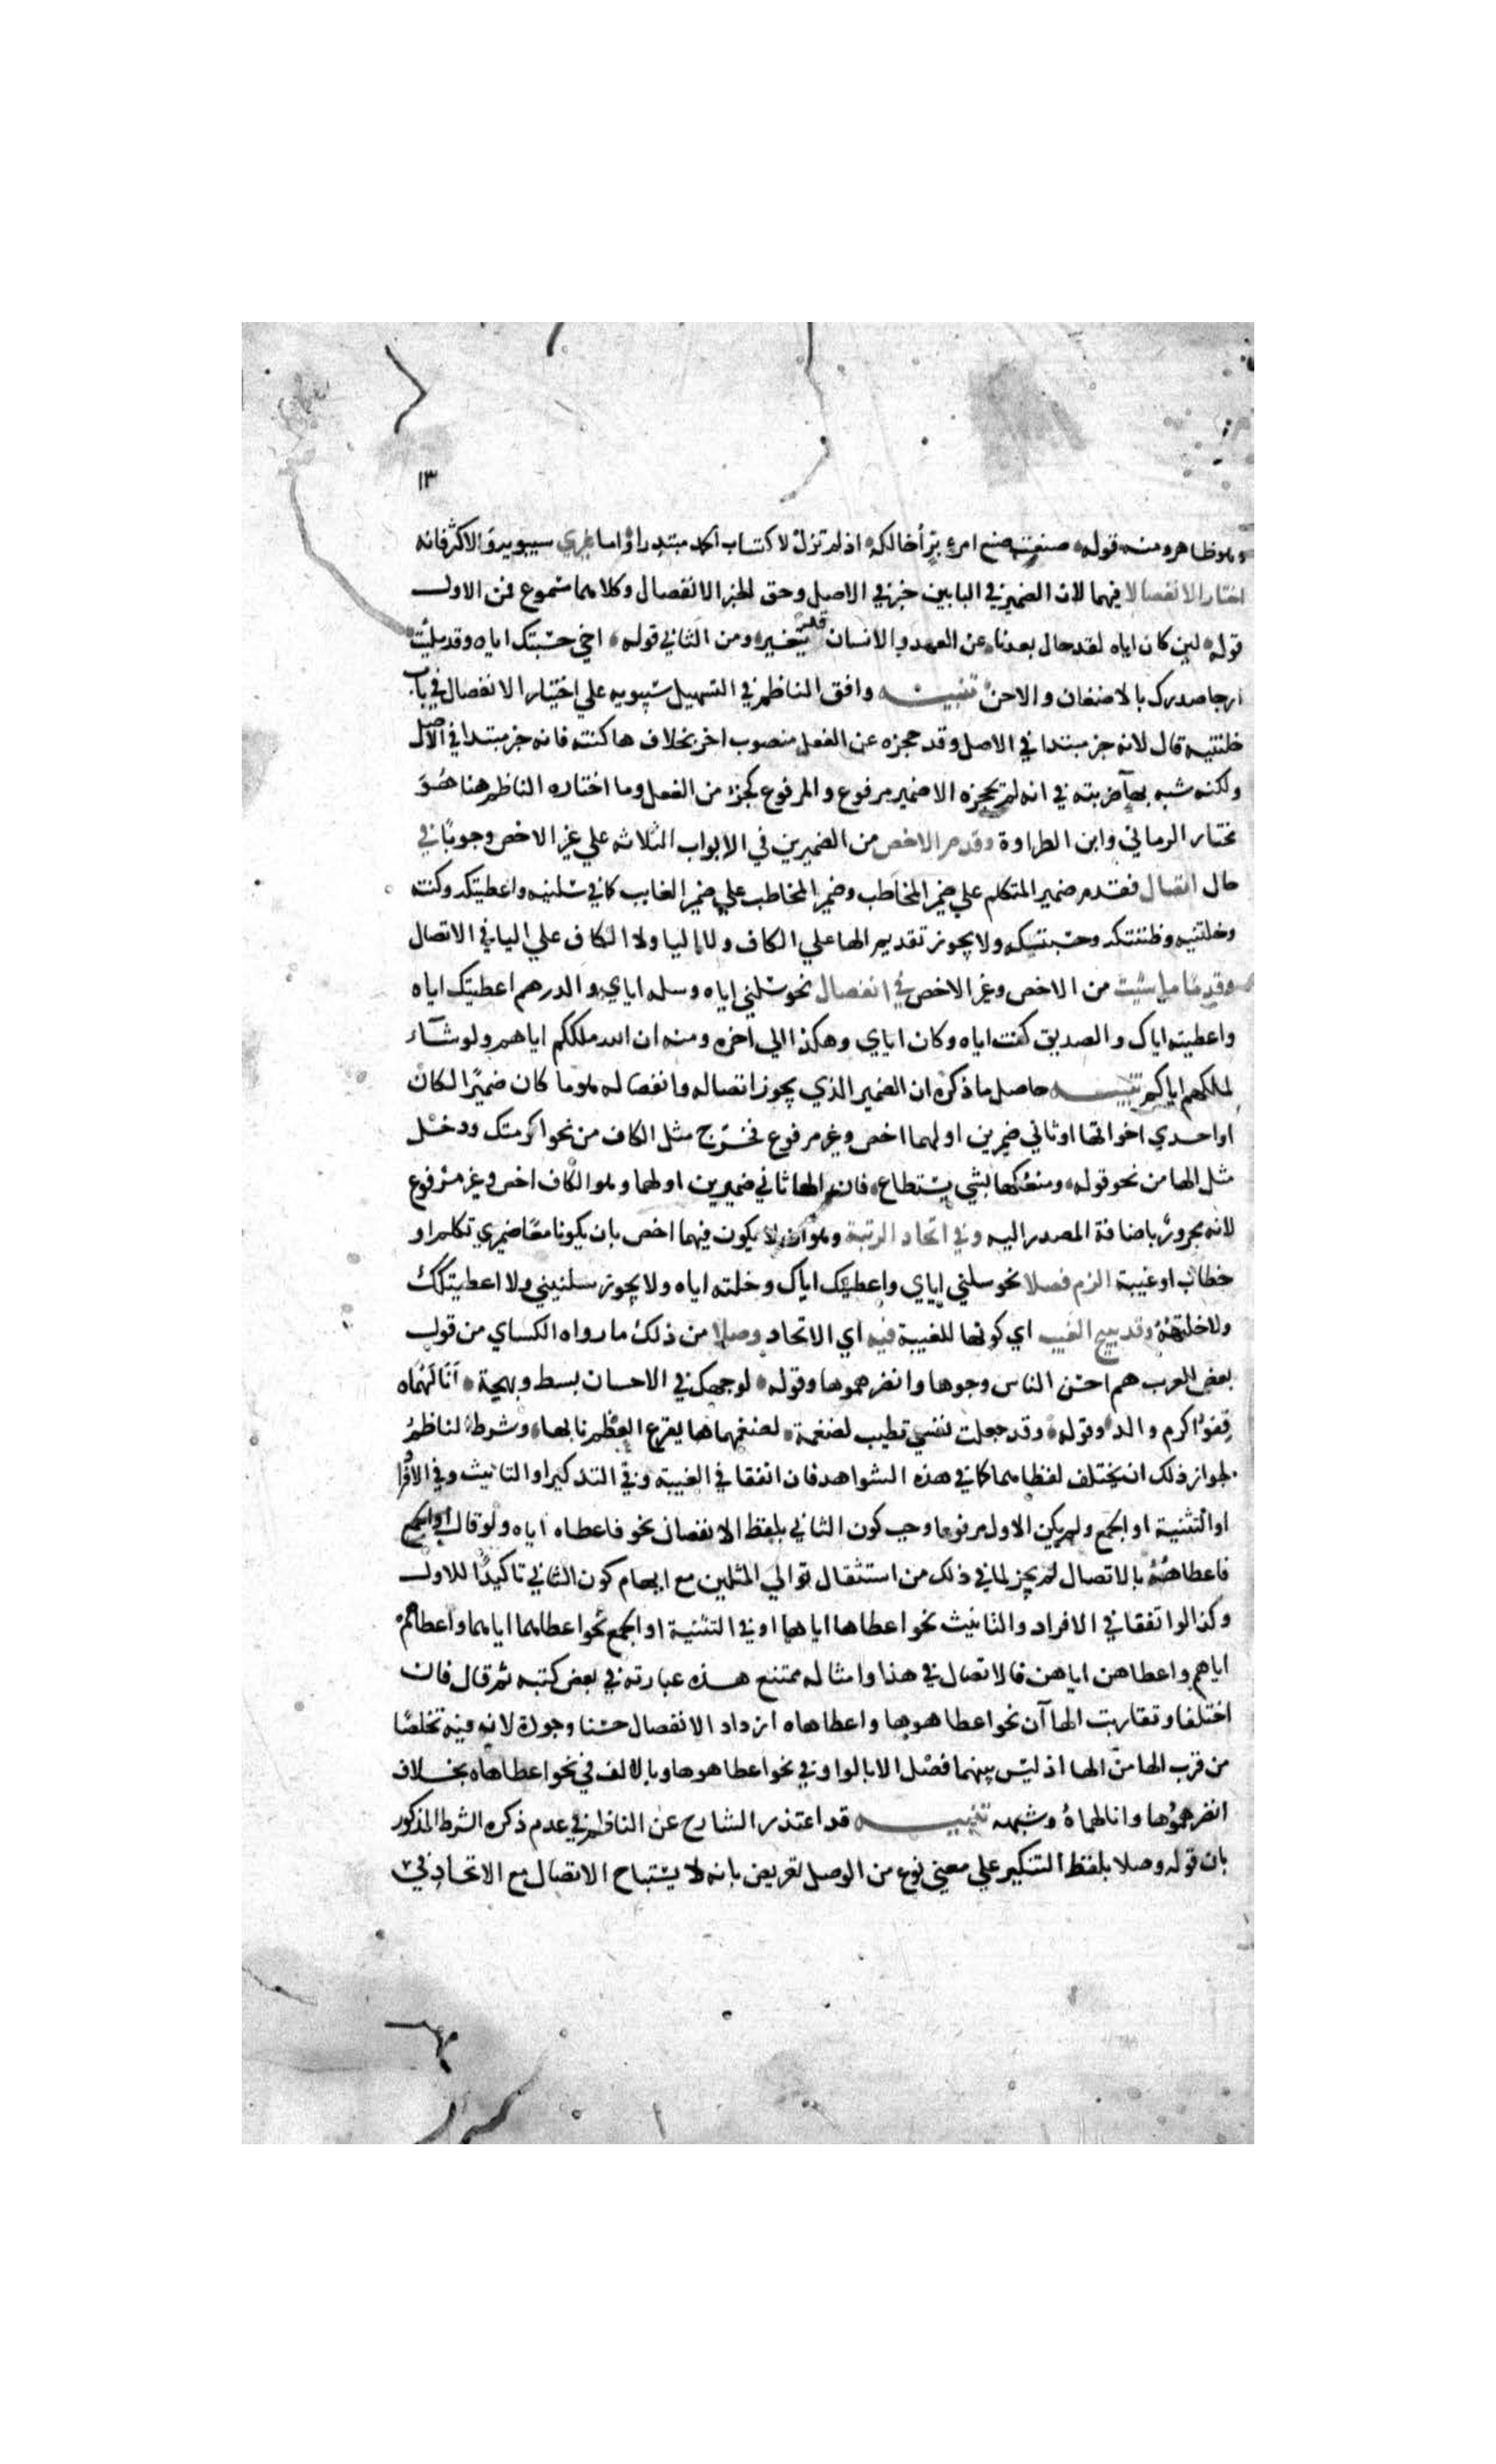 ١٣
وهو ظاهر ومنه قوله صنعت صنع امرء برّ أخالكه اذ لم تزل لاكتساب الحمد مبتدرا واما غيري سيبويه والاكثر فانه
اختار الانفصالا فيهما لان الضمير في البابين خبر في الاصل وحق الخبر الانفصال وكلاهما مسموع فمن الاول
قوله لين كان اياه لقد حال بعدنا عن العهد والانسان قد يتغير ومن الثاني قوله اخي حسبتك اياه وقد مليت
ارجا صدرك بالاضغان والاحن تنبيه وافق الناظم في التسهيل سيبويه علي اختيار الانفصال في باب
خلتنيه قال لانه خبر مبتدا في الاصل وقد حجزه عن الفعل منصوب اخر بخلاف ها كنته فانه خبر مبتدا في الاصل
ولكنه شبه بهآ ضربته في انه لم يحجزه الا ضمير مرفوع والمرفوع كجزء من الفعل وما اختاره الناظم هنا هُوَ
مختار الرماني وابن الطراوة وقدم الاخص من الضميرين في الابواب الثلاثه علي غير الاخص وجوبًا في
حال اتصال فقدم ضمير المتكلم علي ضمير المخاطب وضمير المخاطب علي ضمير الغايب كما في سلنيه واعطيتكه وكنته
وخلتنيه وظننتكه وحسبتكه ولا يجوز تقديم الها علي الكاف ولا اليا ولا الكاف علي اليا في الاتصال
وقدمًا ما شيت من الاخص وغير الاخص في انفصال نحو سلني اياه وسله اياي والدرهم اعطيتك اياه
واعطيته اياك والصديق كنت اياه وكان اياي وهكذا الي اخره ومنه ان الله ملككم اياهم ولو شآء
لملكهم اياكم تنبيه حاصل ما ذكره ان الضمير الذي يجوز اتصاله وانفصاله هو ما كان ضميرًا لكان
او احدي اخواتها او ثاني ضميرين اولهما اخص وغير مرفوع فخرج مثل الكاف من نحو اكرمتك ودخل
مثل الها من نحو قوله ومنعكها بشي يستطاع فان الها ثاني ضميرين اولهما وهو الكاف اخص وغير مرفوع
لانه مجرور باضافة المصدر اليه وفي اتحاد الرتبة وهو ان لا يكون فيهما اخص بان يكونا معًا ضميري تكلم او
خطاب او غيبة الزم فصلا نحو سلني اياي واعطيتك اياك وخلته اياه ولا يجوز سلنيني ولا اعطيتكك
ولا خلتهُهُ وقد يبيح الغيب اي كونها للغيبة فيه اي الاتحاد وصلا من ذلك ما رواه الكساي من قول
بعض العرب هم احسن الناس وجوها وانضرهموها وقوله لوجهك في الاحسان بسط وبهجة أنالَهُمَاه
قِفوُ اكرم والد وقوله وقد جعلت نفسي تطيب لضغمة لضغمهماها يقرع العظم نابها وشرط الناظم
لجواز ذلك ان يختلف لفظاهما كما في هذه الشواهد فان اتفقا في الغيبة وفي التذكير او التانيث وفي الافرا
او التثنية او الجمع ولم يكن الاول مرفوعا وجب كون الثاني بلفظ الانفصال نحو فاعطاه اياه ولو قال
فاعطاههُ بالاتصال لم يجز لما في ذلك من استثقال توالي المثلين مع ايهام كون الثاني تاكيدًا للاول
وكذا لو اتفقا في الافراد والتانيث نحو اعطاها اياها او في التثنية او الجمع نحو اعطاهما اياهما واعطاهم
اياهم واعطاهن اياهن فالاتصال في هذا وامثاله ممتنع هذه عبارته في بعض كتبه ثم قال فان
اختلفا وتقاربت الهاآن نحو اعطاهوها واعطاهاه ازداد الانفصال حسنا وجودة لانه فيه تخلصًا
من قرب الها من الها اذ ليس بينهما فصل الا بالواو في نحو اعطاهوها وبالالف في نحو اعطاهاه بخلاف
انضرهموُها وانالهماهُ وشبهه تنبيه قد اعتذر الشارح عن الناظم في عدم ذكره الشرط المذكور
بان قوله وصلا بلفظ التنكير علي معني نوع من الوصل تعريض بانه لا يستباح الاتصال مع الاتحاد في